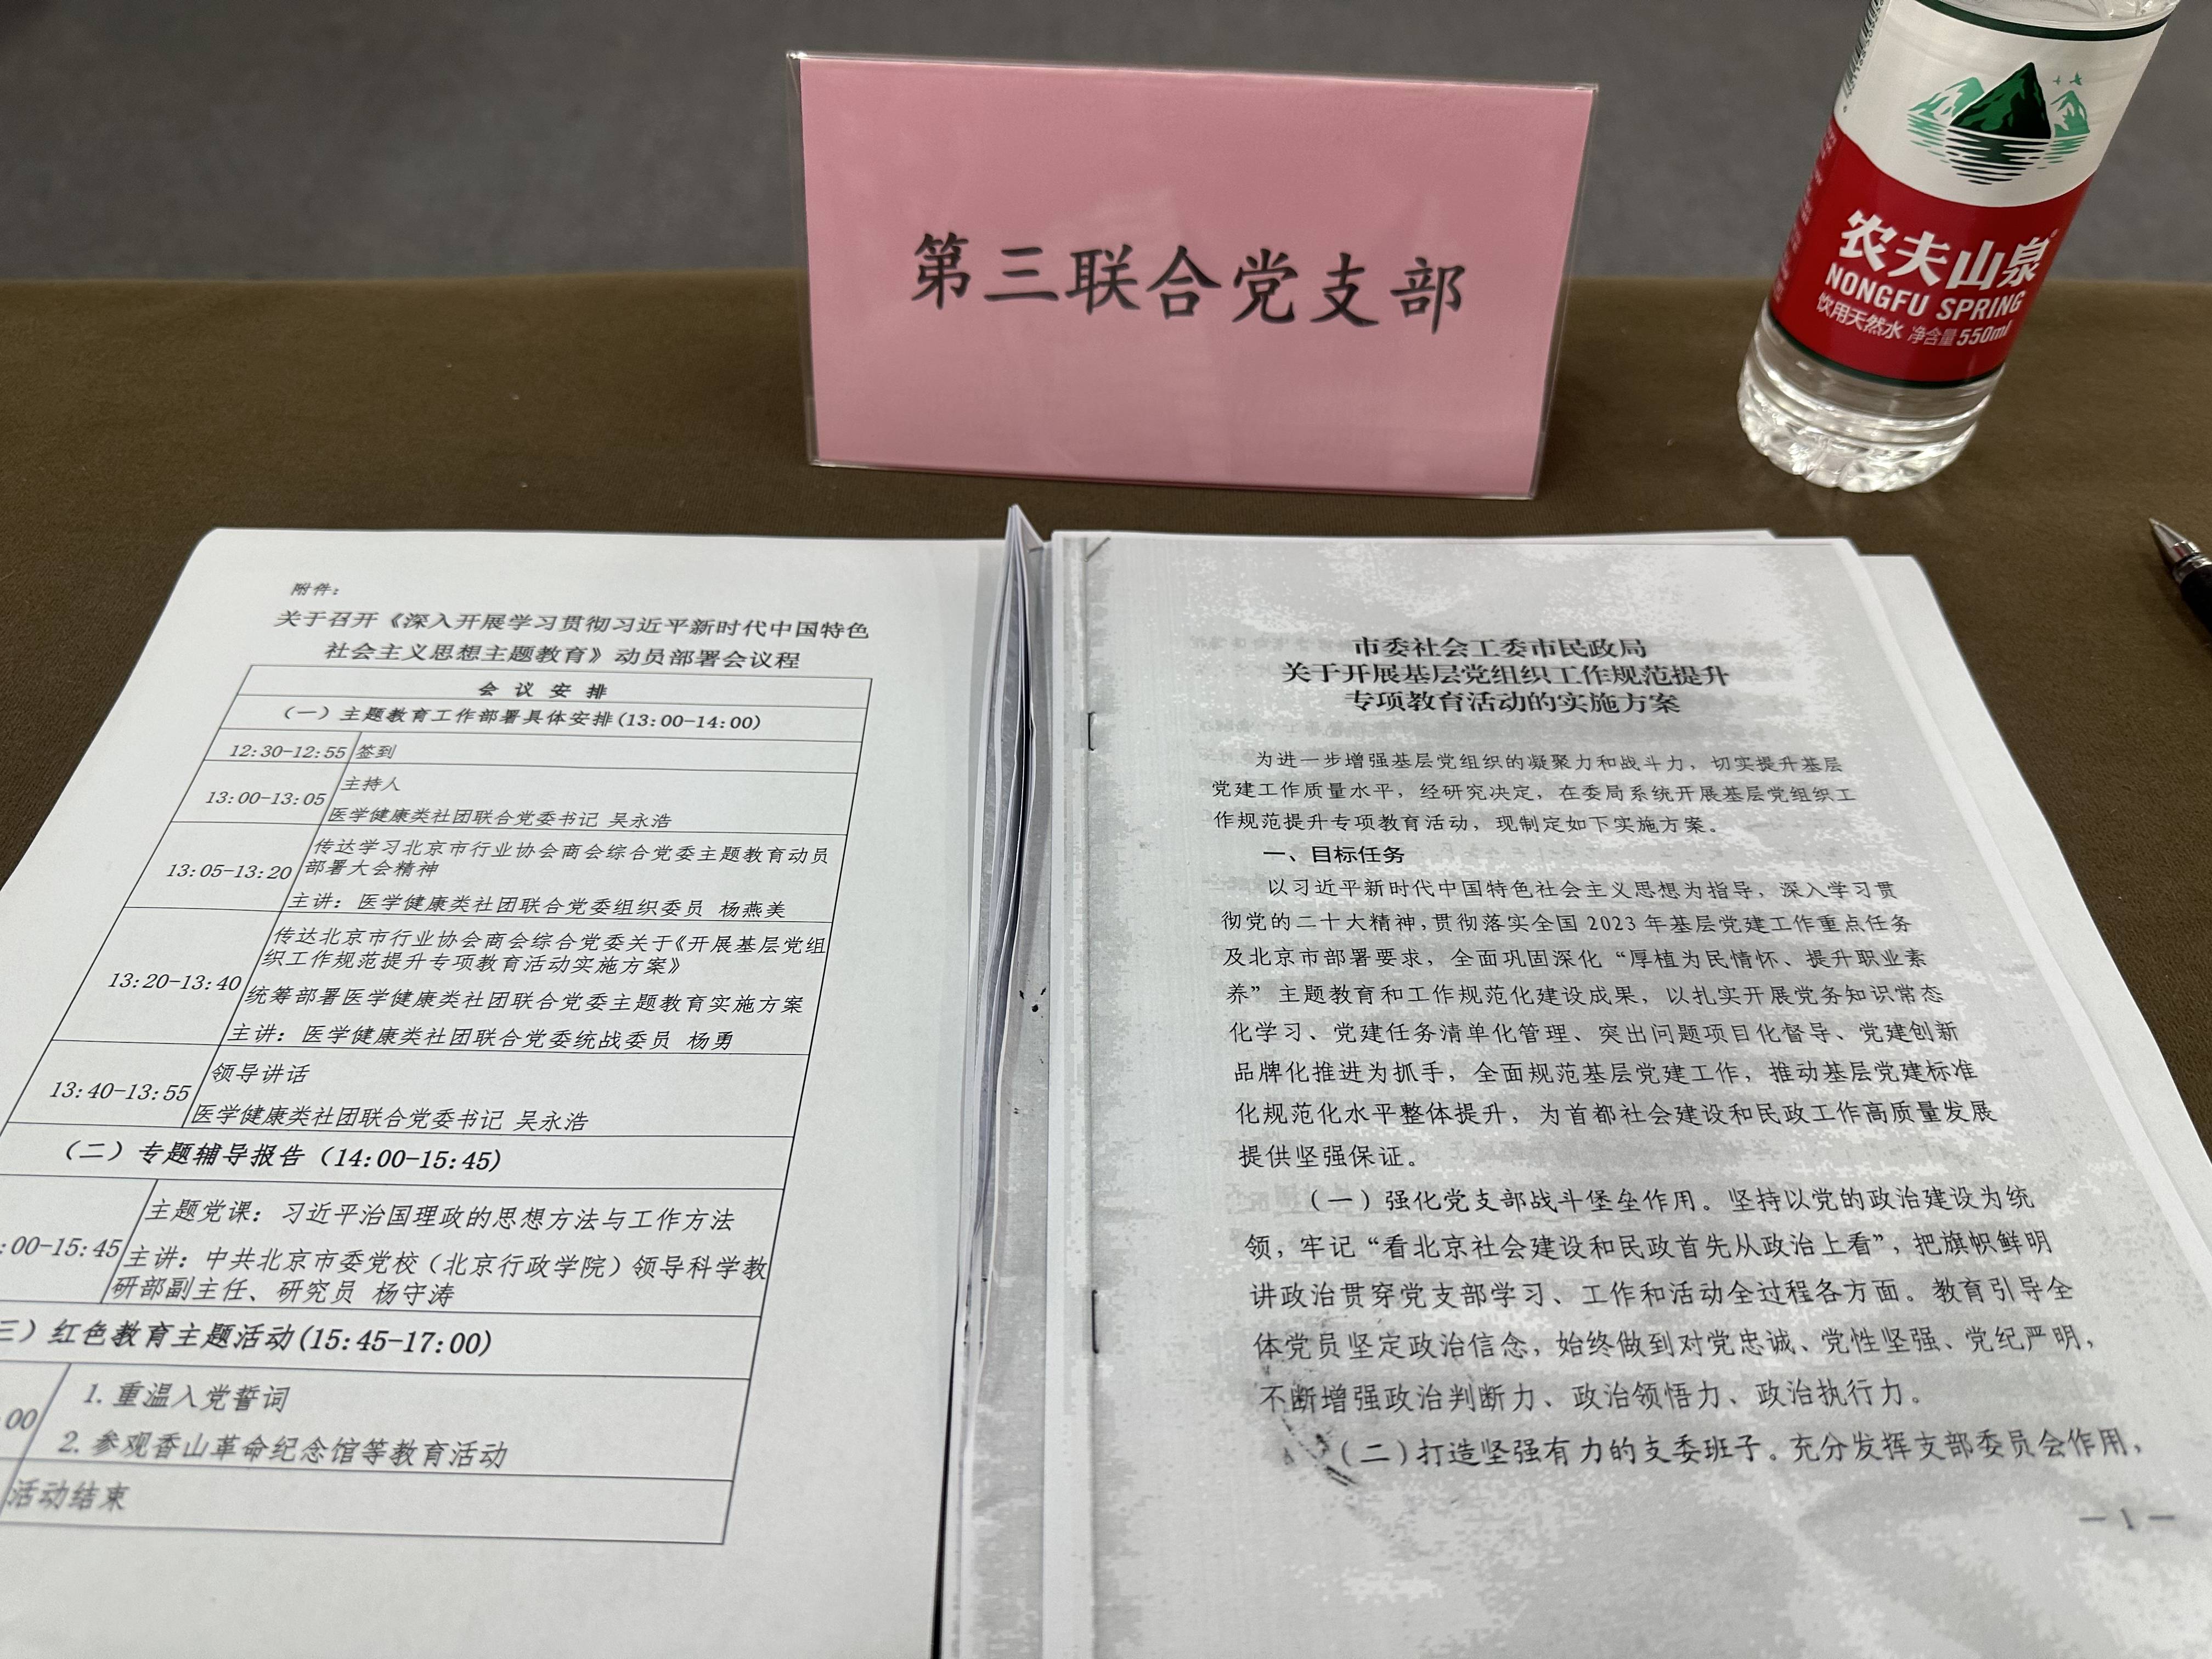 第三联合党支部
农夫山泉
NONGFU SPRING
饮用天然水 净含量550ml
附件：
关于召开《深入开展学习贯彻习近平新时代中国特色
社会主义思想主题教育》动员部署会议程
会 议 安 排
（一）主题教育工作部署具体安排(13:00-14:00)
12:30-12:55 签到
13:00-13:05
主持人
医学健康类社团联合党委书记 吴永浩
13:05-13:20
传达学习北京市行业协会商会综合党委主题教育动员
部署大会精神
主讲：医学健康类社团联合党委组织委员 杨燕美
13:20-13:40
传达北京市行业协会商会综合党委关于《开展基层党组
织工作规范提升专项教育活动实施方案》
统筹部署医学健康类社团联合党委主题教育实施方案
主讲：医学健康类社团联合党委统战委员 杨勇
13:40-13:55
领导讲话
医学健康类社团联合党委书记 吴永浩
（二）专题辅导报告（14:00-15:45)
:00-15:45
主题党课：习近平治国理政的思想方法与工作方法
主讲：中共北京市委党校（北京行政学院）领导科学教
研部副主任、研究员 杨守涛
三）红色教育主题活动(15:45-17:00)
:00
1.重温入党誓词
2.参观香山革命纪念馆等教育活动
活动结束
市委社会工委市民政局
关于开展基层党组织工作规范提升
专项教育活动的实施方案
为进一步增强基层党组织的凝聚力和战斗力，切实提升基层
党建工作质量水平，经研究决定，在委局系统开展基层党组织工
作规范提升专项教育活动，现制定如下实施方案。
一、目标任务
以习近平新时代中国特色社会主义思想为指导，深入学习贯
彻党的二十大精神，贯彻落实全国 2023 年基层党建工作重点任务
及北京市部署要求，全面巩固深化“厚植为民情怀、提升职业素
养”主题教育和工作规范化建设成果，以扎实开展党务知识常态
化学习、党建任务清单化管理、突出问题项目化督导、党建创新
品牌化推进为抓手，全面规范基层党建工作，推动基层党建标准
化规范化水平整体提升，为首都社会建设和民政工作高质量发展
提供坚强保证。
（一）强化党支部战斗堡垒作用。坚持以党的政治建设为统
领，牢记“看北京社会建设和民政首先从政治上看”，把旗帜鲜明
讲政治贯穿党支部学习、工作和活动全过程各方面。教育引导全
体党员坚定政治信念，始终做到对党忠诚、党性坚强、党纪严明，
不断增强政治判断力、政治领悟力、政治执行力。
（二）打造坚强有力的支委班子。充分发挥支部委员会作用，
— 1 —